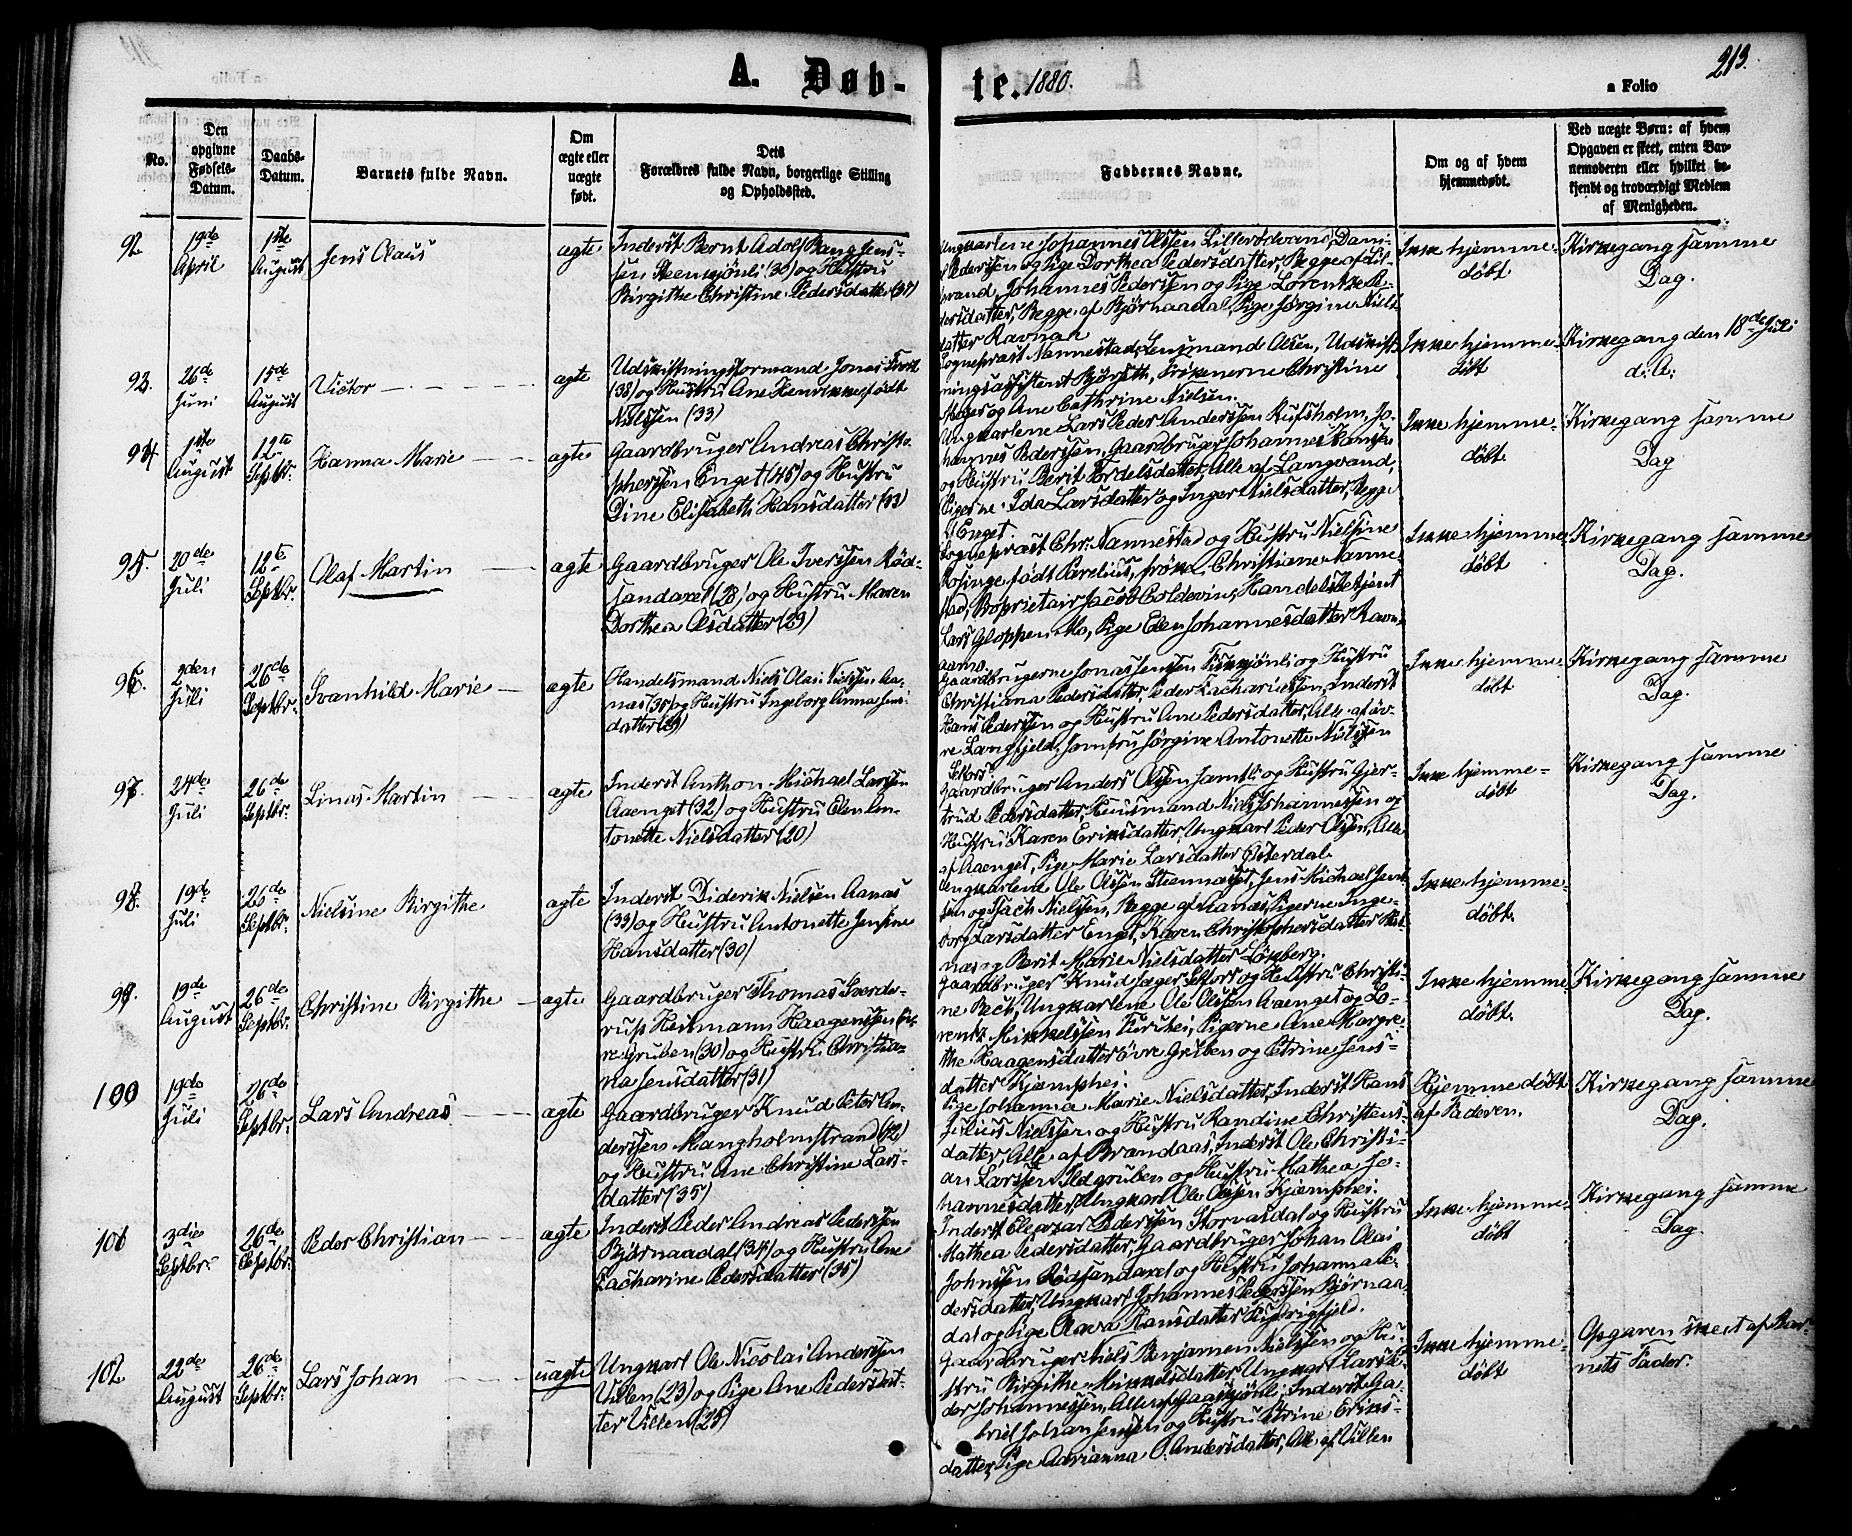 A. Døb-
te. 1880.
213.
a Folio
No.
Den opgivne Fødsels-Datum.
Daabs-Datum.
Barnets fulde Navn.
Om ægte eller uægte født.
Dets Forældres fulde Navn, borgerlige Stilling og Opholdssted.
Faddernes Navne.
Om og af hvem hjemmedøbt.
Ved uægte Børn: af hvem Opgaven er skeet, enten Barnemoderen eller hvilket bekjendt og troværdigt Medlem af Menigheden.
92. 19de April 1ste August Jens Olaus ægte
Inderst Bernt Adolf Bang Jens-
sen (30) og Hustru
Birgithe Christine Pedersdatter (37)
Ungkarlene Johannes Olssen Lillerødvand, Dani-
Pederssen og Pige Dorthea Pedersdatter, Begge af Lil-
vand, Johannes Pederssen og Pige Lorentze Pe-
dersdatter, Begge af Bjørnaadal, Pige Jørgine Niels-
datter Ravnaa
Ikke hjemme-
døbt
Kirkegang samme
Dag.
93. 26de Juni 15de August Victor ægte
Udskiftningsformand Jonas
(38) og Hustru Ane Henrikke født
Nielssen (33)
Sognepræst Nannestad, Lensmand Olsen, Udskift-
ningsassistent Bjørseth, Frøkenerne Christine
og Ane Cathrine Nielsen.
Ikke hjemme-
døbt
Kirkegang den 18de Juli
d. A.
94. 1ste August 12te Septbr. Hanna Marie ægte
Gaardbruger Andreas Christo-
pherssen Enget (45) og Hustru
Dine Elisabeth Hansdatter (33)
Ungkarlene Lars Peder Anderssen Rufsholm, Jo-
hannes Pederssen, Gaardbruger Johannes Hanssen
og Hustru Berit Tordelsdatter, Alle af Langvand,
Pigerne Ida Larsdatter og Inger Nielsdatter, Begge
af Enget.
Ikke hjemme-
døbt.
Kirkegang samme
Dag
95. 20de Juli 12te Septbr. Olaf Martin ægte
Gaardbruger Ole Iverssen Rød-
sandaxel (28) og Hustru Maren
Dorthea Olsdatter (29)
Sognepræst Chr. Nannestad og Hustru Nielsine
Rosinge født Parelius, Frøken Christiane Nanne-
stad, Proprietair Jacob Coldevin, Handelsbetjent
Lars Gloppen Mo, Pige Elen Johannesdatter Ravn-
aamo.
Ikke hjemme-
døbt
Kirkegang samme
Dag.
96. 2den Juli 26de Septbr. Svanhild Marie ægte
Handelsmand Niels Olai Nielssen Aa-
næs (35) og Hustru Ingeborg Anna Jens-
datter (29)
Gaardbrugerne Jonas Jenssen og Hustru
Christiana Pedersdatter, Peder Zachariassen, Inderst
Hans Pederssen og Hustru Ane Pedersdatter, Alle af øv-
re Langfjeld, Jomfru Jørgine Antonette Nielssen
Selfors.
Ikke hjemme-
døbt
Kirkegang samme
Dag.
97. 24de Juli 26de Septbr. Linas Martin ægte
Inderst Anthon Michael Larssen
Aaenget (32) og Hustru Elen An-
tonette Nielsdatter (20)
Gaardbruger Anders Olssen Jamtli og Hustru Gjer-
trud Pedersdatter, Huusmand Niels Johannessen og
Hustru Karen Eriksdatter, Ungkarl Peder Olssen, Alle
af Aaenget, Pige Marie Larsdatter Østerdal.
Ikke hjemme-
døbt
Kirkegang samme
Dag.
98. 19de Juli 26de Septbr. Nielsine Birgithe ægte
Inderst Diderik Nielsen Aanæs
(33) og Hustru Antonette Jensine
Hansdatter (30)
Ungkarlene Ole Olssen Steennæset, Jens Michael Jens-
sen og Isach Nielssen, Begge af Aanæs, Pigerne Inge-
borg Larsdatter Enget, Karen Christophersdatter
næs og Berit Marie Nielsdatter Lønberg.
Ikke hjemme-
døbt.
99. 19de August 26de Septbr. Christine Birgithe ægte
Gaardbruger Thomas Sverde-
rup Heitmann Haagenssen Øv-
re Gruben (30) og Hustru Christia-
na Jensdatter (31)
Gaardbruger Knud Jæger Selfors og Hustru Christi-
ne Bech, Ungkarlene Ole Olssen Aaenget og Lo-
rents Mikkelssen Turihei, Pigerne Ane Margre-
the Haagensdatter Øvre Gruben og Petrine Jens-
datter Kjæmphei.
Ikke hjemme-
døbt.
Kirkegang samme
Dag.
100 19de Juli 26de Septbr. Lars Andreas ægte
Gaardbruger Knud Peter An-
derssen Mangholmstrand (42)
og Hustru Ane Christine Lars-
datter (35)
Pige Johanna Marie Nielsdatter, Inderst Hans
Julius Nielssen og Hustru Randine Christens-
datter, Alle af Brandaas, Inderst Ole Christi-
an Larssen Ildgruben og Hustru Mathea Jo-
hannesdatter, Ungkarl Ole Olssen Kjæmphei.
Hjemmedøbt
af Faderen.
Kirkegang samme
Dag.
101 3die Septbr. 26de Septbr. Peder Christian ægte
Inderst Peder Andreas Pederssen
Bjørnaadal (34) og Hustru Ane
Zacharine Pedersdatter (35)
Inderst Eleazar Pederssen Storvasdal og Hustru
Mathea Pedersdatter, Gaardbruger Johan Olai
Johnssen Rødsandaxel og Hustru Johanna Pe-
dersdatter, Ungkarl Johannes Pederssen Bjørnaa-
dal og Pige Olava Hansdatter
Ikke hjemme-
døbt
Kirkegang samme
Dag.
102 22de August 26de Septbr. Lars Johan uægte
Ungkarl Ole Nicolai Anderssen
Villen (23) og Pige Ane Pedersdat-
ter Villen (25)
Gaardbruger Niels Benjamin Nielssen og Hu-
stru Birgithe Mikkelsdatter, Ungkarl Lars Pe-
der Johannessen, Alle af Gaaskjønli, Inderst Ga-
briel Johan Jenssen og Hustru Petrine Eriks-
datter, Pige Adrianna O. Andersdatter, Alle af Villen
Ikke hjemme-
døbt
Opgaven skeet af Bar-
nets Fader.